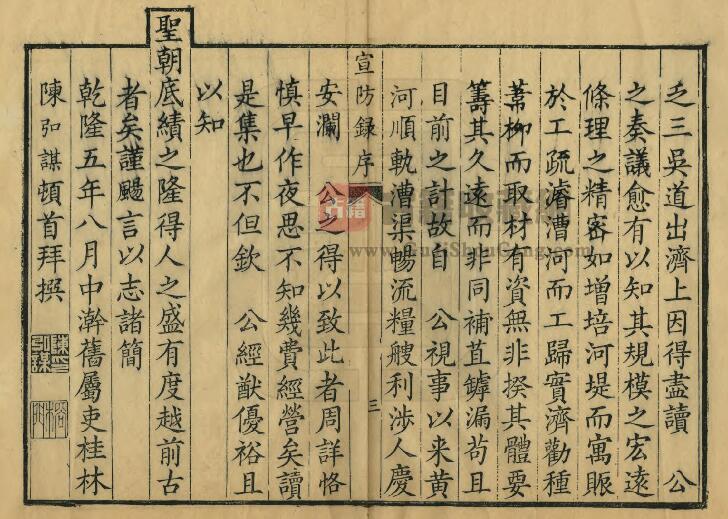 乏三吳道出濟上因得盡讀　公
之奏議愈有以知其規模之宏遠
條理之精密如增培河堤而寓賑
於工疏濬漕河而工歸實濟勸種
葦柳而取材有資無非揆其體要
籌其久遠而非同補苴罅漏苟且
目前之計故自　公視事以来黃
河順軌漕渠暢流糧艘利涉人慶
宣防録序
三
安瀾　公之得以致此者周詳恪
慎早作夜思不知幾費經營矣讀
是集也不但欽　公經猷優裕且
以知
聖朝底績之隆得人之盛有度越前古
者矣謹颺言以志諸簡
乾隆五年八月中澣舊屬吏桂林
陳弘謀頓首拜撰
古籍
www.GuJiShouCang.com